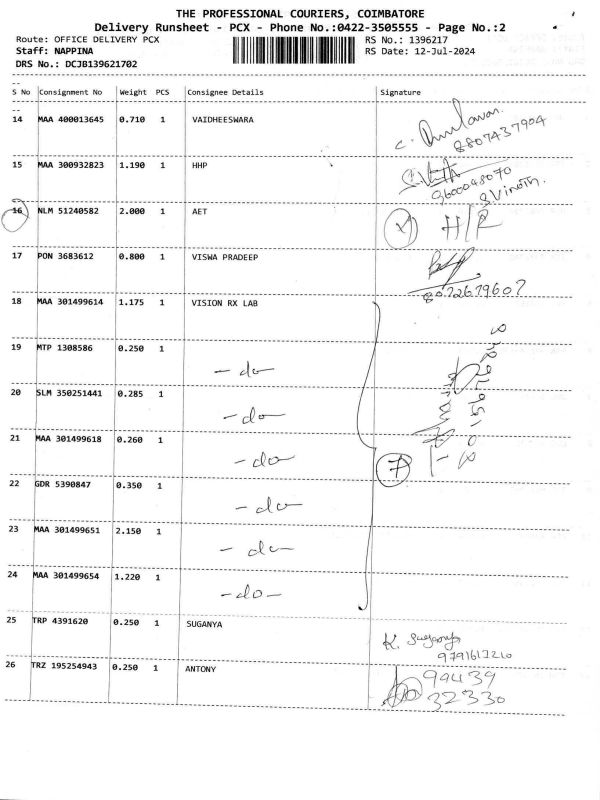 THE PROFESSIONAL COURIERS, COIMBATORE
Delivery Runsheet - PCX - Phone No.:0422-3505555 - Page No.:2
Route: OFFICE DELIVERY PCX RS No.: 1396217
Staff: NAPPINA RS Date: 12-Jul-2024
DRS No.: DCJB139621702
S No Consignment No Weight PCS Consignee Details Signature
14 MAA 400013645 0.710 1 VAIDHEESWARA
8807437904
15 MAA 300932823 1.190 1 HHP
9600048070
S Vinoth.
16 NLM 51240582 2.000 1 AET H/R
17 PON 3683612 0.800 1 VISWA PRADEEP
8072679607
18 MAA 301499614 1.175 1 VISION RX LAB
19 MTP 1308586 0.250 1 -do-
20 SLM 350251441 0.285 1 -do-
21 MAA 301499618 0.260 1 -do- 7
22 GDR 5390847 0.350 1 -do-
23 MAA 301499651 2.150 1 -do-
24 MAA 301499654 1.220 1 -do-
25 TRP 4391620 0.250 1 SUGANYA K. Suganya
9791613210
26 TRZ 195254943 0.250 1 ANTONY 99439
32330